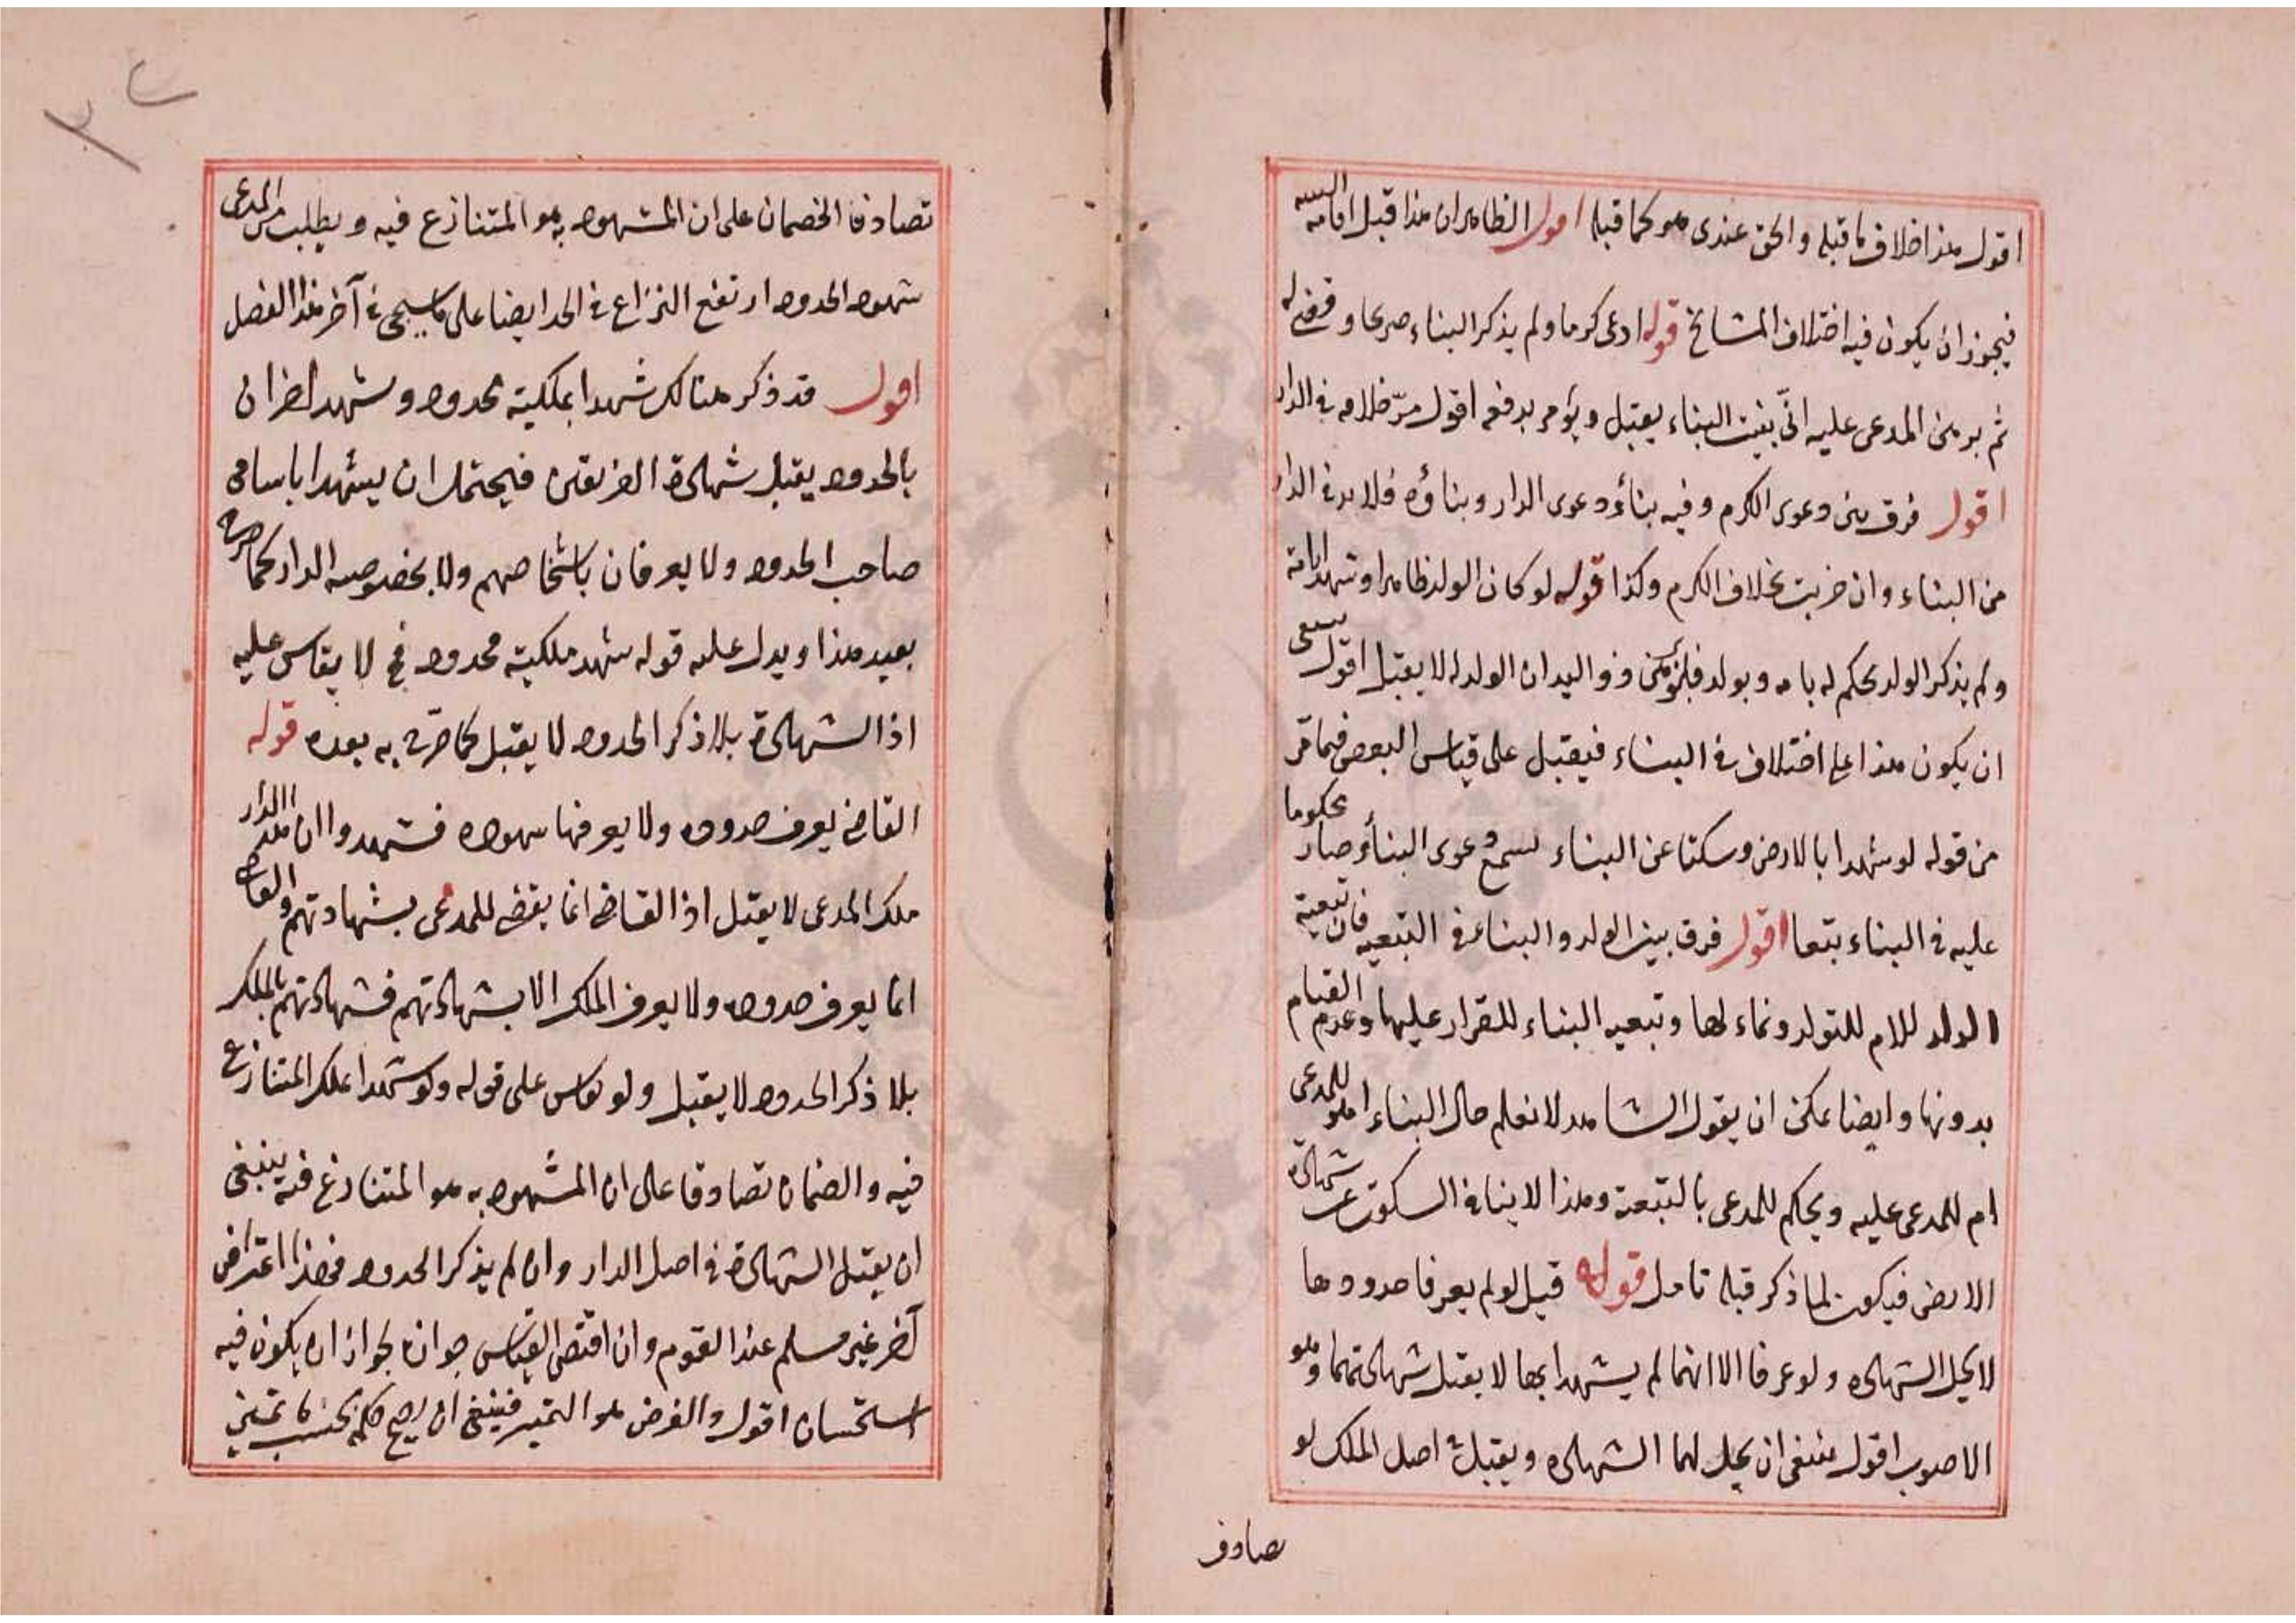 اقول هذا خلاف ما قبله والحق عندى هو كما قبله اقول الظاهر ان هذا قبل اقامة البينة
فيجوز ان يكون فيه اختلاف المشايخ قوله ادعى كرما ولم يذكر البناء صريحا وقضى له
ثم برهن المدعى عليه انّى بنيت البناء يقبل ويؤمر بدفعه اقول مرّ خلافه فى الدار
اقول فرق بين دعوى الكرم وفيه بناؤ دعوى الدار وبناؤه فلا بد فى الدار
من البناء وان خربت بخلاف الكرم وكذا قوله لو كان الولد ظاهرا وشهدا انه
ولم يذكر الولد يحكم له بامه وبولد فلو برهن ذو اليد ان الولد له لا يقبل اقول ينبغى
ان يكون هذا على اختلاف فى البناء فيقبل على قياس البعض فيما مّر
من قوله لو شهدا بالارض وسكتا عن البناء لسمع دعوى البناؤ صار محكوما
عليه فى البناء تبعا اقول فرق بين الولد والبناء فى التبعيه فان تبعية
الولد للام للتولد ونماء لها وتبعيه البناء للقرار عليها وعدم القيام
بدونها وايضا يمكن ان يقول الشاهد لا نعلم حال البناء اهو للمدعى
ام للمدعى عليه ويحكم للمدعى بالتبعة وهذا لا ينافى السكوت عن شهادة
الارض فيكون لما ذكر قبله تامل قوله قيل لو لم يعرفا حدودها
لا يحل الشهادة ولو عرفا الا انهما لم يشهدا بها لا يقبل شهادتهما وهو
الاصوب اقول ينبغى ان يحل لهما الشهادة ويقبل فى اصل الملك لو
تصادق
تصادقا الخصمان على ان المشهود به هو المتنازع فيه ويطلب من المدعى
شهود الحدود ارتفع النزاع فى الحد ايضا على ما سيجى فى آخر هذا الفصل
اقول قد ذكر هنالك شهدا بملكية محدود وشهد اخران
بالحدود يقبل شهادة الفريقين فيحتمل ان يشهدا باسامى
صاحب الحدود ولا يعرفان باشخاصهم ولا بخصوصه الدار كما صرح
بعيد هذا ويدل عليه قوله شهد ملكية محدود فح لا يقاس عليه
اذا الشهادة بلا ذكر الحدود لا يقبل كما صرح به بعده قوله
القاضى يعرف حدوده ولا يعرفها شهوده فشهدوا ان هذا الدار
ملك المدعى لا يقبل اذ القاضى انما يقضى للمدعى بشهادتهم والقاضى
انما يعرف حدوده ولا يعرف الملك الا بشهادتهم فشهادتهم بالملك
بلا ذكر الحدود لا يقبل ولو نوقس على قوله ولو شهدا بملك المتنازع
فيه والخصمان تصادقا على ان المشهود به هو المتنازع فيه ينبغى
ان يقبل الشهادة فى اصل الدار وان لم يذكر الحدود فهذا اعتراض
آخر غير مسلم عند القوم وان اقتضى القياس جوازه لجواز ان يكون فيه
استحسان اقول والغرض هو التميز فينبغى ان يصح